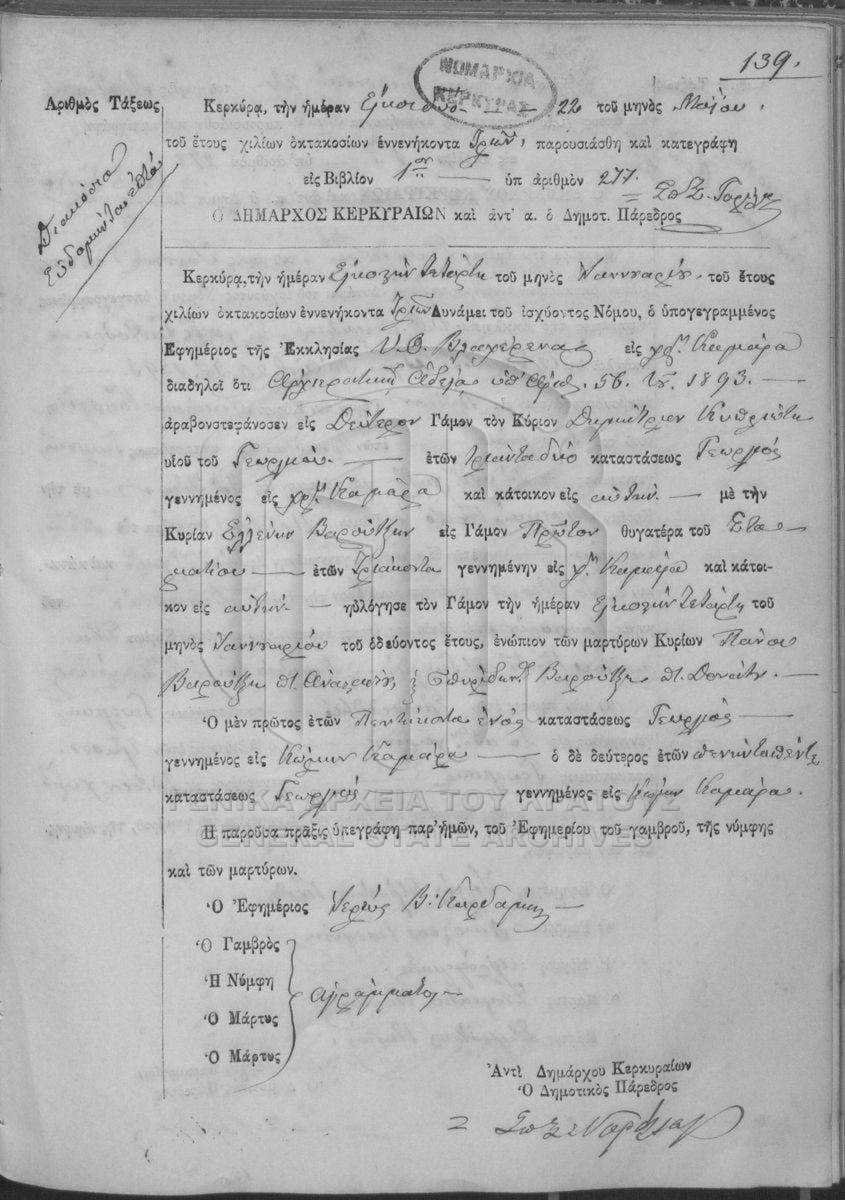 139.
ΝΟΜΑΡΧΙΑ
ΚΕΡΚΥΡΑΣ
Ἀριθμὸς Τάξεως
Διακόσια
ἑβδομήντα ἑπτά
Κερκύρα, τὴν ἡμέραν 22 τοῦ μηνὸς Μαΐου.
τοῦ ἔτους χιλίων ὀκτακοσίων ἐννενήκοντα Τριῶν, παρουσιάσθη καὶ κατεγράφη
εἰς Βιβλίον 1ον ὑπ ἀριθμὸν 277.
Ὁ ΔΗΜΑΡΧΟΣ ΚΕΡΚΥΡΑΙΩΝ καὶ ἀντ' α. ὁ Δημοτ. Πάρεδρος
Κερκύρα, τὴν ἡμέραν Εἰκοστὴν Τετάρτη τοῦ μηνὸς Ἰαννουαρίου. τοῦ ἔτους
χιλίων ὀκτακοσίων ἐννενήκοντα Τριῶν Δυνάμει τοῦ ἰσχύοντος Νόμου, ὁ ὑπογεγραμμένος
Ἐφημέριος τῆς Ἐκκλησίας Υ. Θ. Βλαχέρενα εἰς χρ. Καμάρα
διαδηλοῖ ὅτι Ἀρχιερατικῇ Ἀδείᾳ ὑπ' Ἀριθ. 56. 1893.
ἀραβονστεφάνοσεν εἰς Δεύτερον Γάμον τὸν Κύριον Δημήτριον Κυπριώτη
υἱοῦ τοῦ Γεωργίου. ἐτῶν τριάντα δύο καταστάσεως Γεωργός
γεννημένος εἰς χρ. Καμάρα καὶ κάτοικον εἰς αὐτήν. μὲ τὴν
Κυρίαν Ἑλλένην Βαρούτζη εἰς Γάμον Πρῶτον θυγατέρα τοῦ Στα-
ματίου ἐτῶν Τριάκοντα γεννημένην εἰς χρ. Καμάρα καὶ κάτοι-
κον εἰς αὐτήν. ηὐλόγησε τὸν Γάμον τὴν ἡμέραν Εἰκοστὴν Τετάρτη τοῦ
μηνὸς Ἰαννουαρίου τοῦ ὁδεύοντος ἔτους, ἐνώπιον τῶν μαρτύρων Κυρίων Πάνου
Βαρούτζη π. Ἀναστάση, ἡ Σπυρίδων Βαρούτζη π. Δονάτη.
Ὁ μὲν πρῶτος ἐτῶν Πεντήκοντα ἑνὸς καταστάσεως Γεωργὸς
γεννημένος εἰς Κώμην Καμάρα ὁ δὲ δεύτερος ἐτῶν πενήντα πέντε,
καταστάσεως Γεωργὸς γεννημένος εἰς Κώμην Καμάρα.
ΓΕΝΙΚΑ ΑΡΧΕΙΑ ΤΟΥ ΚΡΑΤΟΥΣ
Ἡ παροῦσα πρᾶξις ὑπεγράφη παρ' ἡμῶν, τοῦ Ἐφημερίου τοῦ γαμβροῦ, τῆς νύμφης
GENERAL STATE ARCHIVES
καὶ τῶν μαρτύρων.
Ὁ Ἐφημέριος Ἱερεὺς Β. Καρδάμης
Ὁ Γαμβρὸς
Ἡ Νύμφη
ἀγράμματοι
Ὁ Μάρτυς
Ὁ Μάρτυς
Ἀντὶ Δημάρχου Κερκυραίων
Ὁ Δημοτικὸς Πάρεδρος